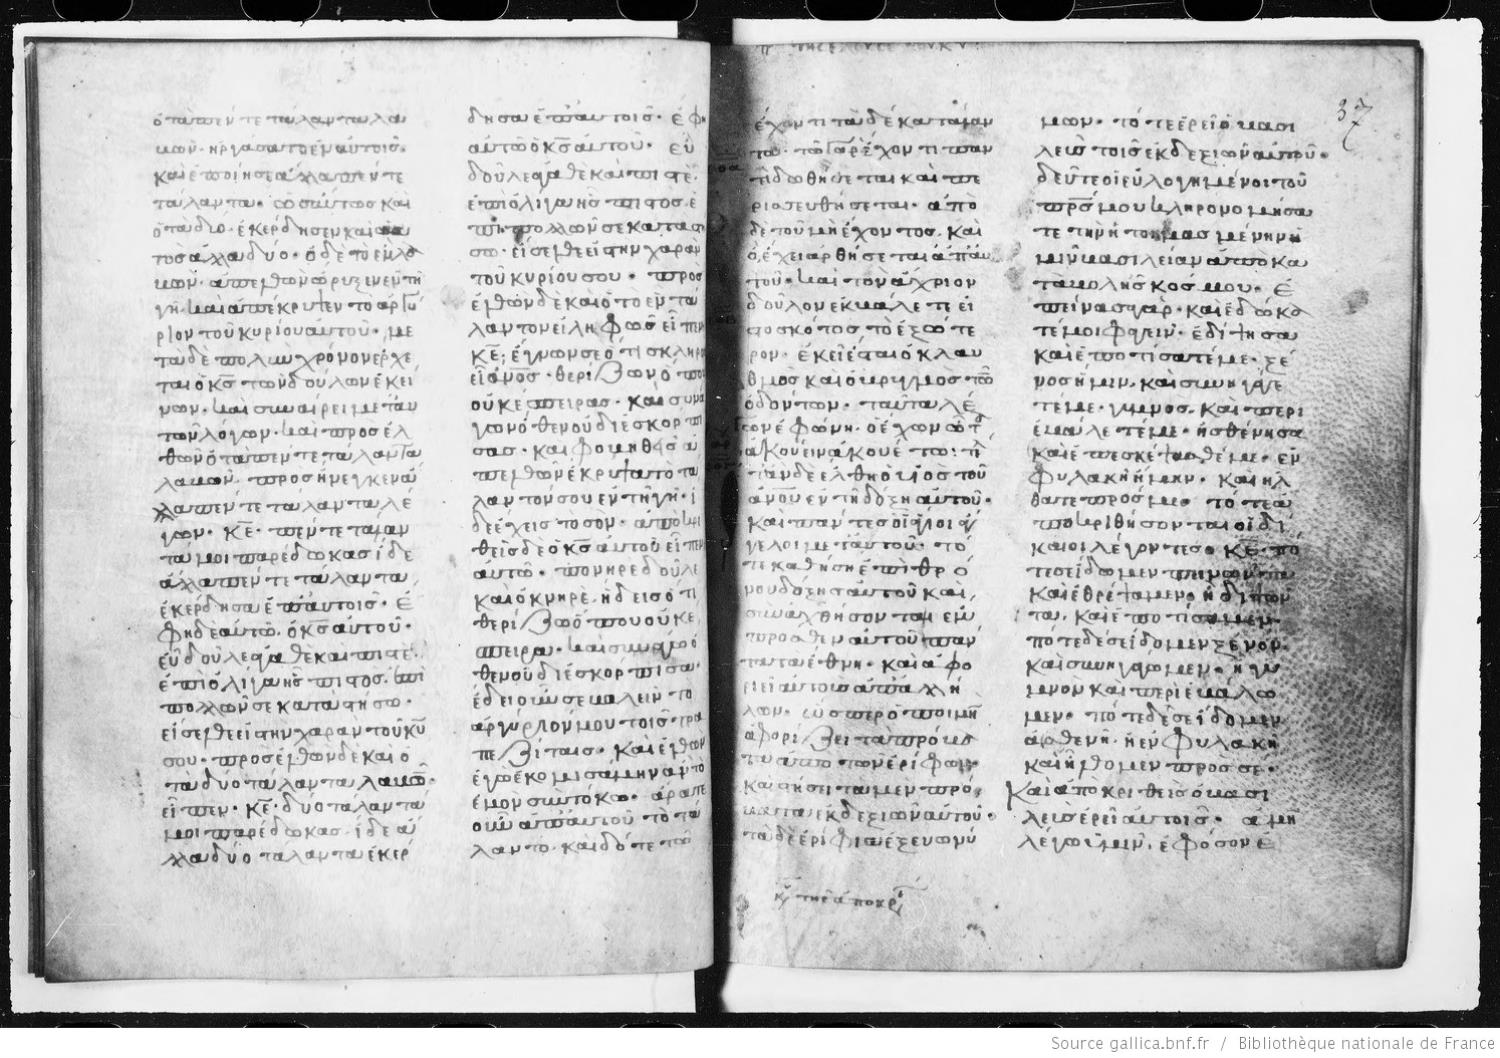 ὁ τὰ πέντε τάλαντα λα
βων· ἠργάσατο ἐν αὐτοῖς·
καὶ ἐποίησε ἄλλα πέντε
τάλαντα· ὡσαύτως καὶ
ὁ τὰ δύο· ἐκέρδησεν καὶ αυ
τὸς ἄλλα δύο· ὁ δὲ τὸ ἓν λα
βων· ἀπελθὼν ὤρυξεν ἐν τῇ
γῇ· καὶ ἀπέκρυψεν τὸ ἀργύ
ριον τοῦ κυρίου αὐτοῦ· με
τὰ δὲ πολὺν χρόνον ἔρχε
ται ὁ κς τῶν δούλων ἐκεί
νων· καὶ συναίρει μετ' αὐ
τῶν λόγων· καὶ προσελ
θὼν ὁ τὰ πέντε τάλαντα
λαβων· προσήνεγκεν ἄ
λλα πέντε τάλαντα λέ
γων· κε· πέντε τάλαν
τά μοι παρέδωκας ἴδε
ἄλλα πέντε τάλαντα,
ἐκέρδησα ἐπ' αὐτοῖς· ἔ
φη δὲ αὐτῶ· ὁ κς αὐτοῦ·
εὖ δοῦλε ἀγαθὲ καὶ πιστέ·
ἐπὶ ὀλίγα ἦς πιστός· ἐπὶ
πολλῶν σε καταστήσω·
εἴσελθε εἰς τὴν χαρὰν τοῦ κυ
σου· προσελθὼν δὲ καὶ ὁ
τὰ δύο τάλαντα λαβὼν·
εἶπεν· κε· δύο τάλαντά
μοι παρέδωκας· ἴδε ἄ
λλα δύο τάλαντα ἐκέρ
δησα ἐπ' αὐτοῖς· ἔφη
αὐτῶ ὁ κς αὐτοῦ· εὖ
δοῦλε ἀγαθὲ καὶ πιστέ·
ἐπὶ ὀλίγα ἦς πιστός ἐ
πὶ πολλῶν σε καταστή
σω· εἴσελθε εἰς τὴν χαρὰν
τοῦ κυρίου σου· προσ
ελθὼν δὲ καὶ ὁ τὸ ἓν τά
λαντον εἰληφὼς εἶπεν
κε; ἔγνων σε ὅτι σκληρὸς
εἶ ανος· θερίζων ὅπου
οὐκ ἔσπειρας· καὶ συνά
γων ὅθεν οὐ διεσκόρπι
σας· καὶ φοβηθεὶς ἀ
πελθὼν ἔκρυψα τὸ τά
λαντόν σου ἐν τῇ γῇ· ἴ
δε ἔχεις τὸ σὸν· ἀποκρι
θεὶς δὲ ὁ κς αὐτοῦ εἶπεν
αὐτῶ· πονηρὲ δοῦλε
καὶ ὀκνηρέ, ᾔδεις ὅτι
θερίζω ὅπου οὐκ ἔ
σπειρα· καὶ συνάγω ὅ
θεν οὐ διεσκόρπισα·
ἔδει οὖν σε βαλεῖν τὸ
ἀργύριόν μου τοῖς τρα
πεζίταις· καὶ ἐλθὼν
ἐγὼ ἐκομισάμην ἂν τὸ
ἐμὸν σὺν τόκω· ἄρατε
οὖν ἀπ' αὐτοῦ· τὸ τά
λαντο· καὶ δότε τῶ
ἔχοντι τὰ δέκα τάλαν
τα· τῶ γὰρ ἔχοντι παν
τὶ δοθήσεται καὶ πε
ρισσευθήσεται· ἀπὸ
δὲ τοῦ μὴ ἔχοντος· καὶ
ὃ ἔχει ἀρθήσεται ἀπ' αὐ
τοῦ· καὶ τὸν ἀχρεῖον
δοῦλον ἐκβάλετε εἰ
ς τὸ σκότος τὸ ἐξώτε
ρον· ἐκεῖ ἔσται ὁ κλαυ
θμὸς καὶ ὁ βρυγμὸς τῶν
ὀδόντων· ταῦτα λέ
γων ἐφώνη· ὁ ἔχων ὦτα
ἀκούειν ἀκουέτω·
ὅταν δὲ ἔλθῃ ὁ υἱὸς τοῦ
ανου ἐν τῇ δόξῃ αὐτοῦ·
καὶ πάντες οἱ ἅγιοι ἄγ
γελοι μετ' αὐτοῦ· τό
τε καθήσει ἐπὶ θρό
νου δόξης αὐτοῦ καὶ,
συναχθήσονται ἔμ
προσθεν αὐτοῦ πάν
τα τὰ ἔθνη· καὶ ἀφο
ριεῖ αὐτοὺς ἀπ' ἀλλή
λων· ὥσπερ ὁ ποιμὴν
ἀφορίζει τὰ πρόβα
τα ἀπὸ τῶν ἐρίφων·
καὶ στήσει τὰ μὲν πρό
βατα ἐκ δεξιῶν αὐτοῦ·
τὰ δὲ ἐρίφια ἐξ εὐωνύ
μων· τότε ἐρεῖ ὁ βασι
λεὺς τοῖς ἐκ δεξιῶν αὐτοῦ·
δεῦτε οἱ εὐλογημένοι τοῦ
πρς μου κληρονομήσα
τε τὴν ἡτοιμασμένην ὑ
μῖν βασιλείαν ἀπὸ κα
ταβολῆς κόσμου· ἐ
πείνασα γὰρ· καὶ ἐδώκα
τέ μοι φαγεῖν· ἐδίψησα
καὶ ἐποτίσατέ με· ξέ
νος ἤμην· καὶ συνηγάγε
τέ με· γυμνὸς· καὶ περι
εβάλετέ με· ἠσθένησα
καὶ ἐπεσκέψασθέ με· ἐν
φυλακῇ ἤμην· καὶ ἤλ
θατε πρός με· τότε ἀ
ποκριθήσονται οἱ δί
καιοι λέγοντες· κε· πό
τε σε εἴδομεν πεινῶντα
καὶ ἐθρέψαμεν· ἢ διψῶν
τα, καὶ ἐποτίσαμεν·
πότε δέ σε εἴδομεν ξένον·
καὶ συνηγάγομεν· ἢ γυ
μνὸν καὶ περιεβάλο
μεν· πότε δέ σε εἴδομεν
ἀσθενῆ· ἢ ἐν φυλακῇ
καὶ ἤλθομεν πρός σε·
Καὶ ἀποκριθεὶς ὁ βασι
λεὺς ἐρεῖ αὐτοῖς· ἀμὴ
λέγω ὑμῖν, ἐφ' ὅσον ἐ
37
Source gallica.bnf.fr / Bibliothèque nationale de France